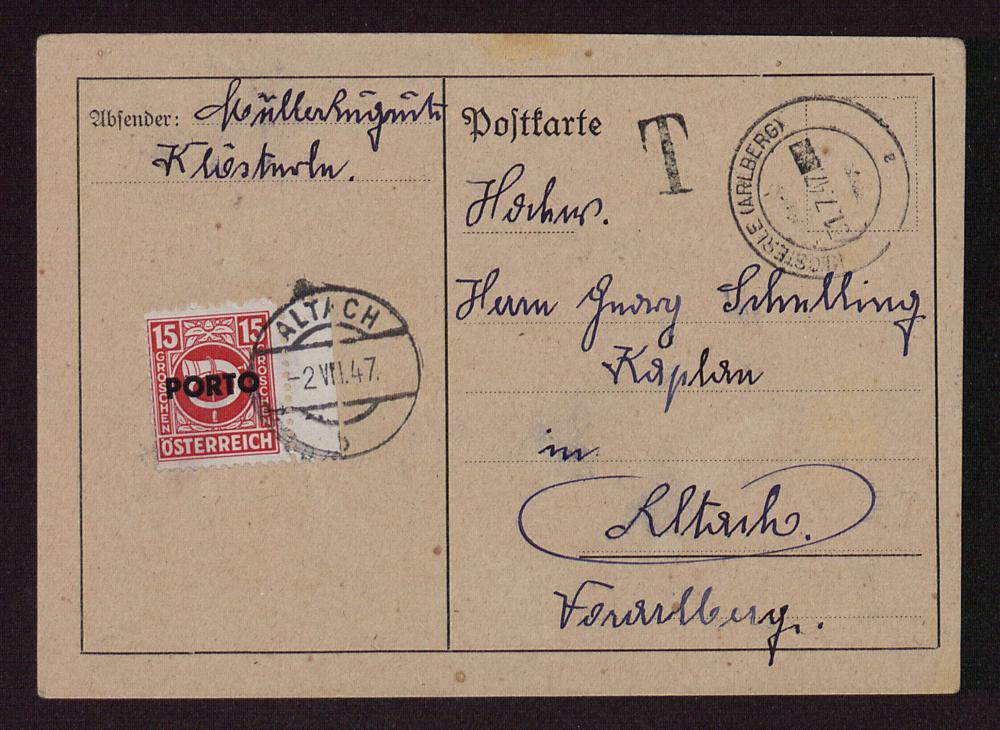 Absender:
Klösterle.
Postkarte
T
KLÖSTERLE (ARLBERG)
1.7.47
a
Hochw.
Herrn Georg Schelling
Kaplan
in
Altach.
Vorarlberg.
15 15
GROSCHEN GROSCHEN
PORTO
ÖSTERREICH
ALTACH
-2.VII.47.
b